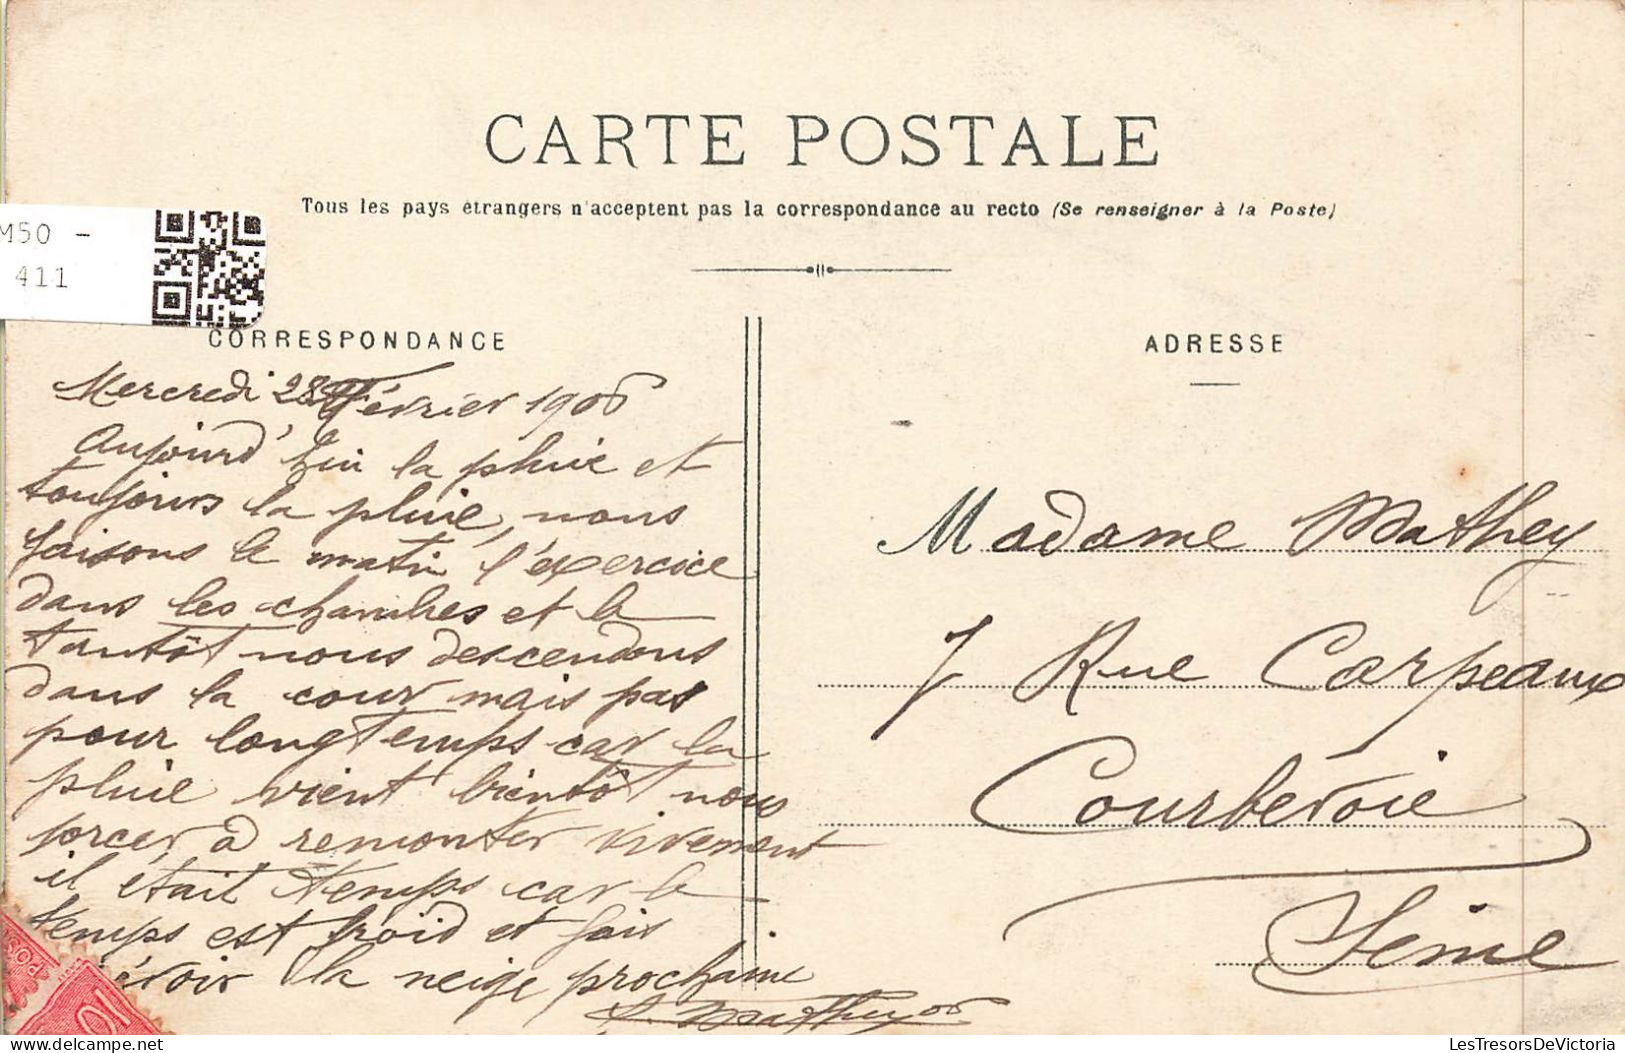 CARTE POSTALE
Tous les pays étrangers n'acceptent pas la correspondance au recto (Se renseigner à la Poste)
M50 -
411
CORRESPONDANCE
ADRESSE
Mercredi 28 Février 1906
Aujourd'hui la pluie et
toujours la pluie, nous
faisons le matin l'exercice
dans les chambres et le
tantôt nous descendons
dans la cour mais pas
pour longtemps car la
pluie vient bientôt nous
forcer à remonter vivement
il était temps car le
temps est froid et fais
la neige prochaine
Mathey
Madame Mathey
7 Rue Carpeaux
Courbevoie
Seine
10
POS
LesTresorsDeVictoria